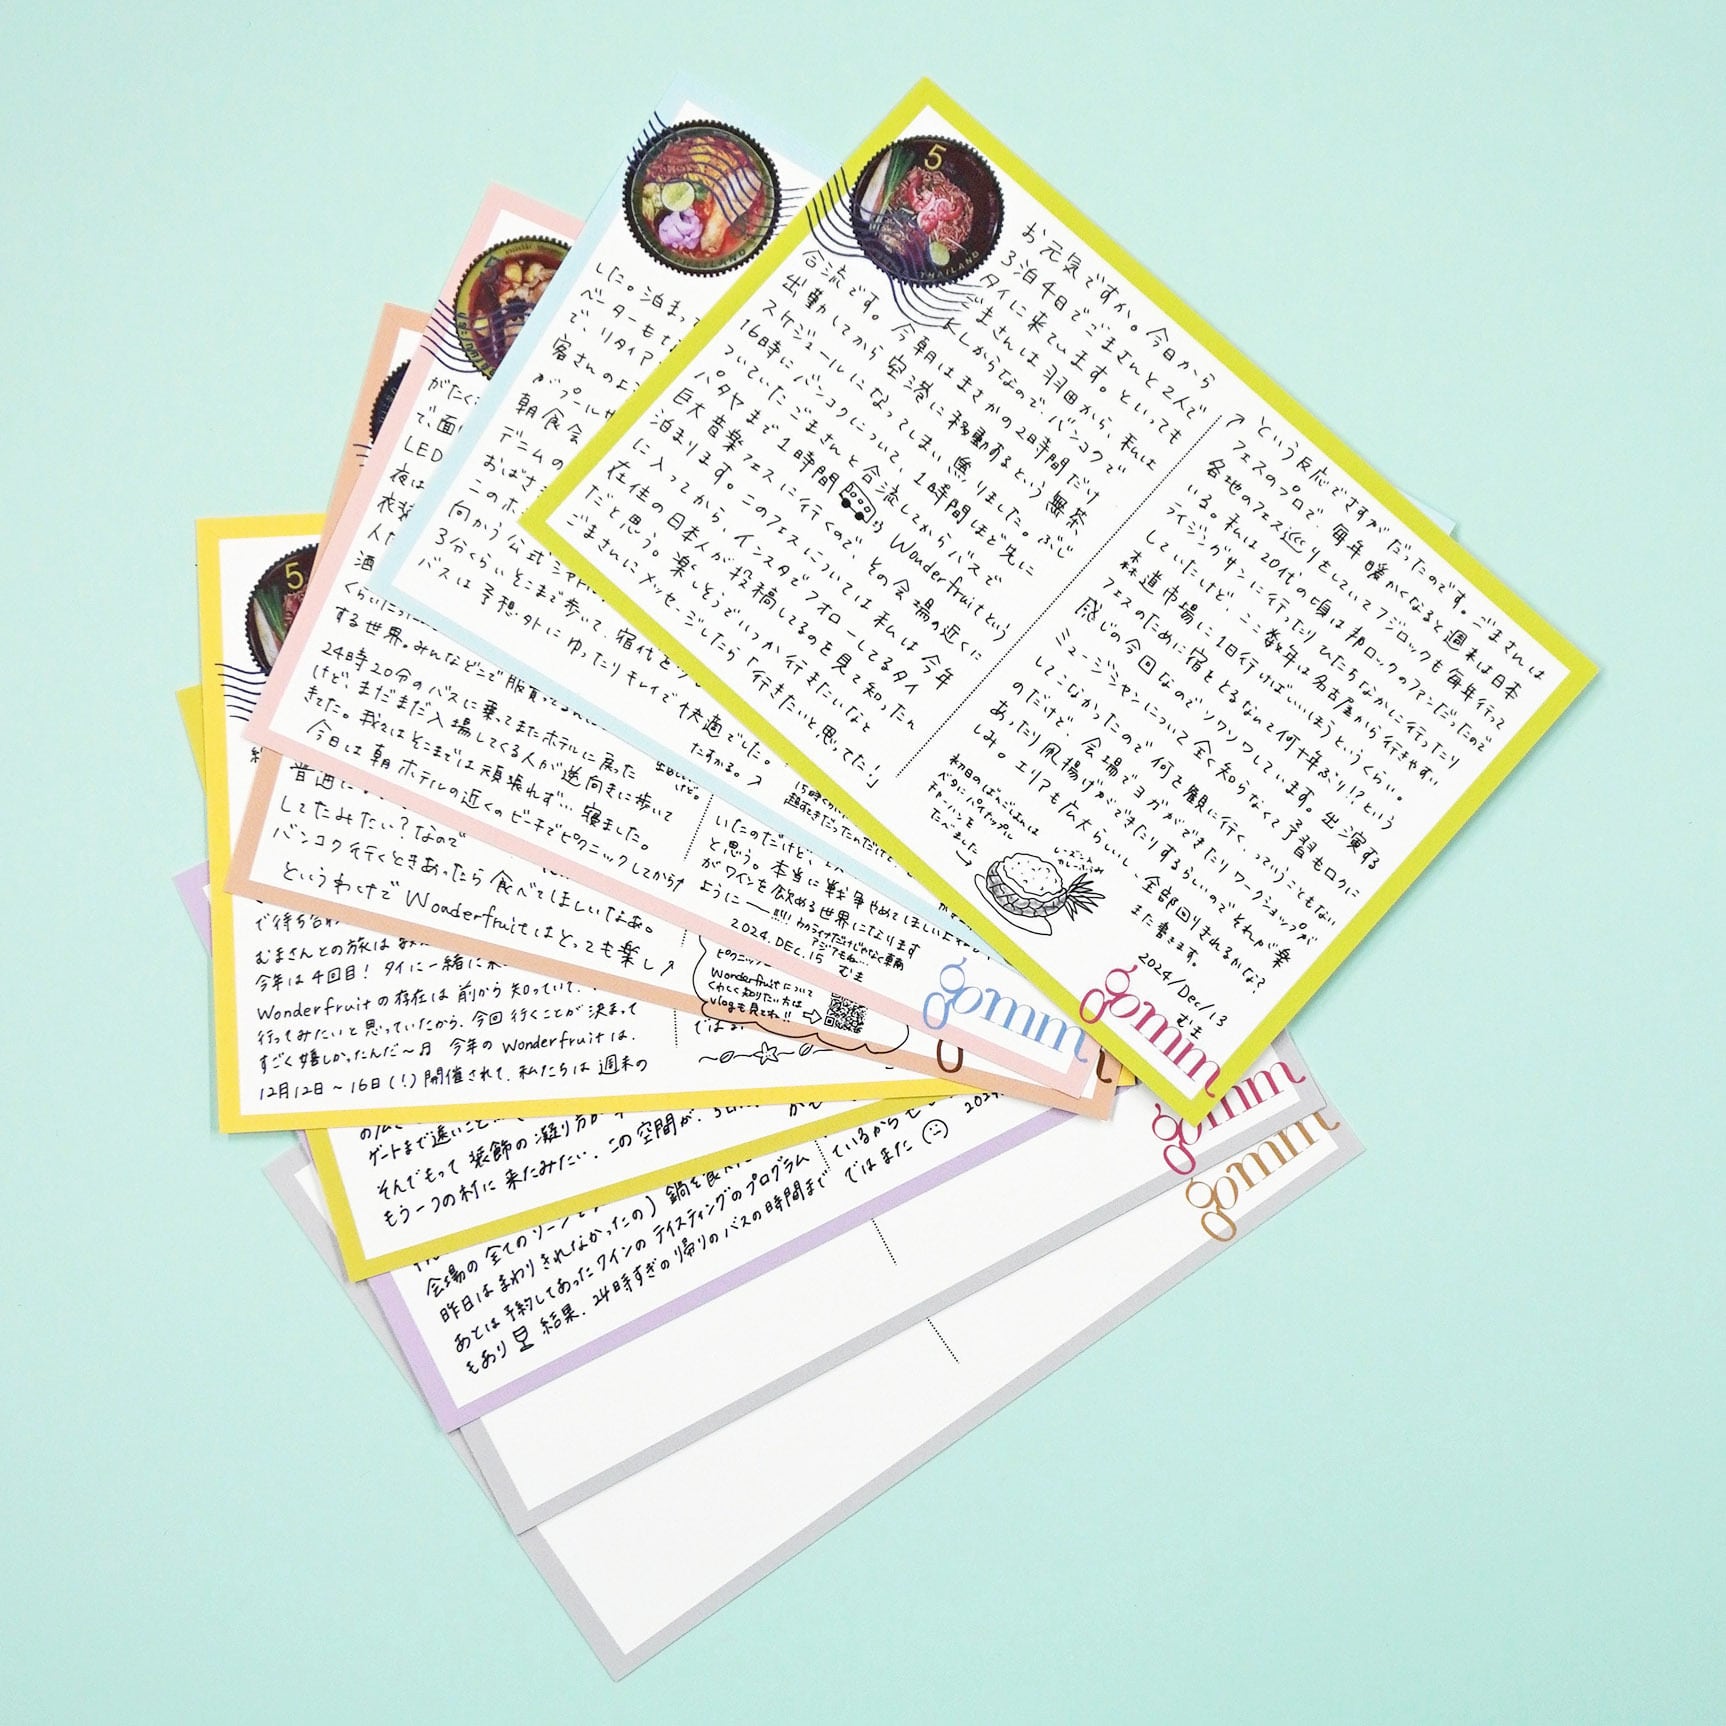 5
THAILAND
お元気ですか。今日から
3泊4日でごまさんと2人で
タイに来ています。といっても
ごまさんは羽田から、私は
KLからなので、バンコクで
合流です。今朝はまさかの2時間だけ
出勤してから空港に移動するという無茶
スケジュールになってしまい焦りました。ぶじ
16時にバンコクについて、1時間ほど先に
ついていたごまさんと合流してからバスで
パタヤまで1時間 Wonderfruitという
巨大音楽フェスに行くので、その会場の近くに
泊まります。このフェスについては私は今年
に入ってから、インスタでフォローしてるタイ
在住の日本人が投稿してるのを見て知ったん
だと思う。楽しそうでいつか行きたいなと
ごまさんにメッセージしたら「行きたいと思ってた!」
↗という反応でさすがだったのです。ごまさんは
フェスのプロで、毎年暖かくなると週末は日本
各地のフェス巡りをしていてフジロックも毎年行って
いる。私は20代の頃は邦ロックのファンだったので
ライジングサンに行ったりひたちなかに行ったり
していたけど、ここ数年は名古屋から行きやすい
森道市場に1日行ければいいほうというくらい。
フェスのために宿とるなんて何十年ぶり!?という
感じの今回なのでソワソワしています。出演する
ミュージシャンについて全く知らなくて予習もロクに
してこなかったので何を観に行く、っていうこともない
のだけど、会場でヨガができたりワークショップが
あったり凧揚げができたりするらしいのでそれが楽
しみ。エリアも広大らしいし、全部回りきれるかな?
また書きます。
2024/Dec/13
むま
初日のばんごはんは
ベタにパイナップル
チャーハンを
たべました
gomm
した。泊まって
ベーターもな
で、リタイア
客さんのよう
がプールサ
朝食会
デニムの
おばさ
このホ
向かう公式シャト
3分くらいそこまで歩いて、宿代と
バスは予想外にゆったりキレイで快適でした。
たすかる。↗
gomm
がたく
で、面
LED
夜は
衣装
人た
酒
くらいに
する世界。みんなどこで服買ってるん
24時20分のバスに乗ってまたホテルに戻った
けど、まだまだ入場してくる人が逆向きに歩いて
きてた。我々はそこまでは頑張れず…寝ました。
今日は朝ホテルの近くのビーチでピクニックしてから↗
いたのだけど、
と思う。本当に戦争やめてほしい
がワインを飲める世界になります
ように
2024.DEC.15 むま
普通に
してたみたい?なので
バンコク行くときあったら食べてほしいなぁ。
というわけでWonderfruitはとっても楽し↗
Wonderfruitについて
くわしく知りたい方は
vlogも見てね!!
では
5
で待ち合わ
むまさんとの旅は
今年は4回目!タイに一緒に
Wonderfruitの存在は前から知っていて、
行ってみたいと思っていたから、今回行くことが決まって
すごく嬉しかったんだ〜 今年のWonderfruitは、
12月12日〜16日(!)開催されて、私たちは週末の
ゲートまで遠いこと
そんでもって装飾の凝り方が
もう一つの村に来たみたい、この空間が、
会場の全てのゾーン
昨日はまわりきれなかったの)鍋を食べ
あとは予約してあったワインのテイスティングのプログラム
もあり 結果、24時すぎの帰りのバスの時間まで
ているから
ではまた
gomm
gomm